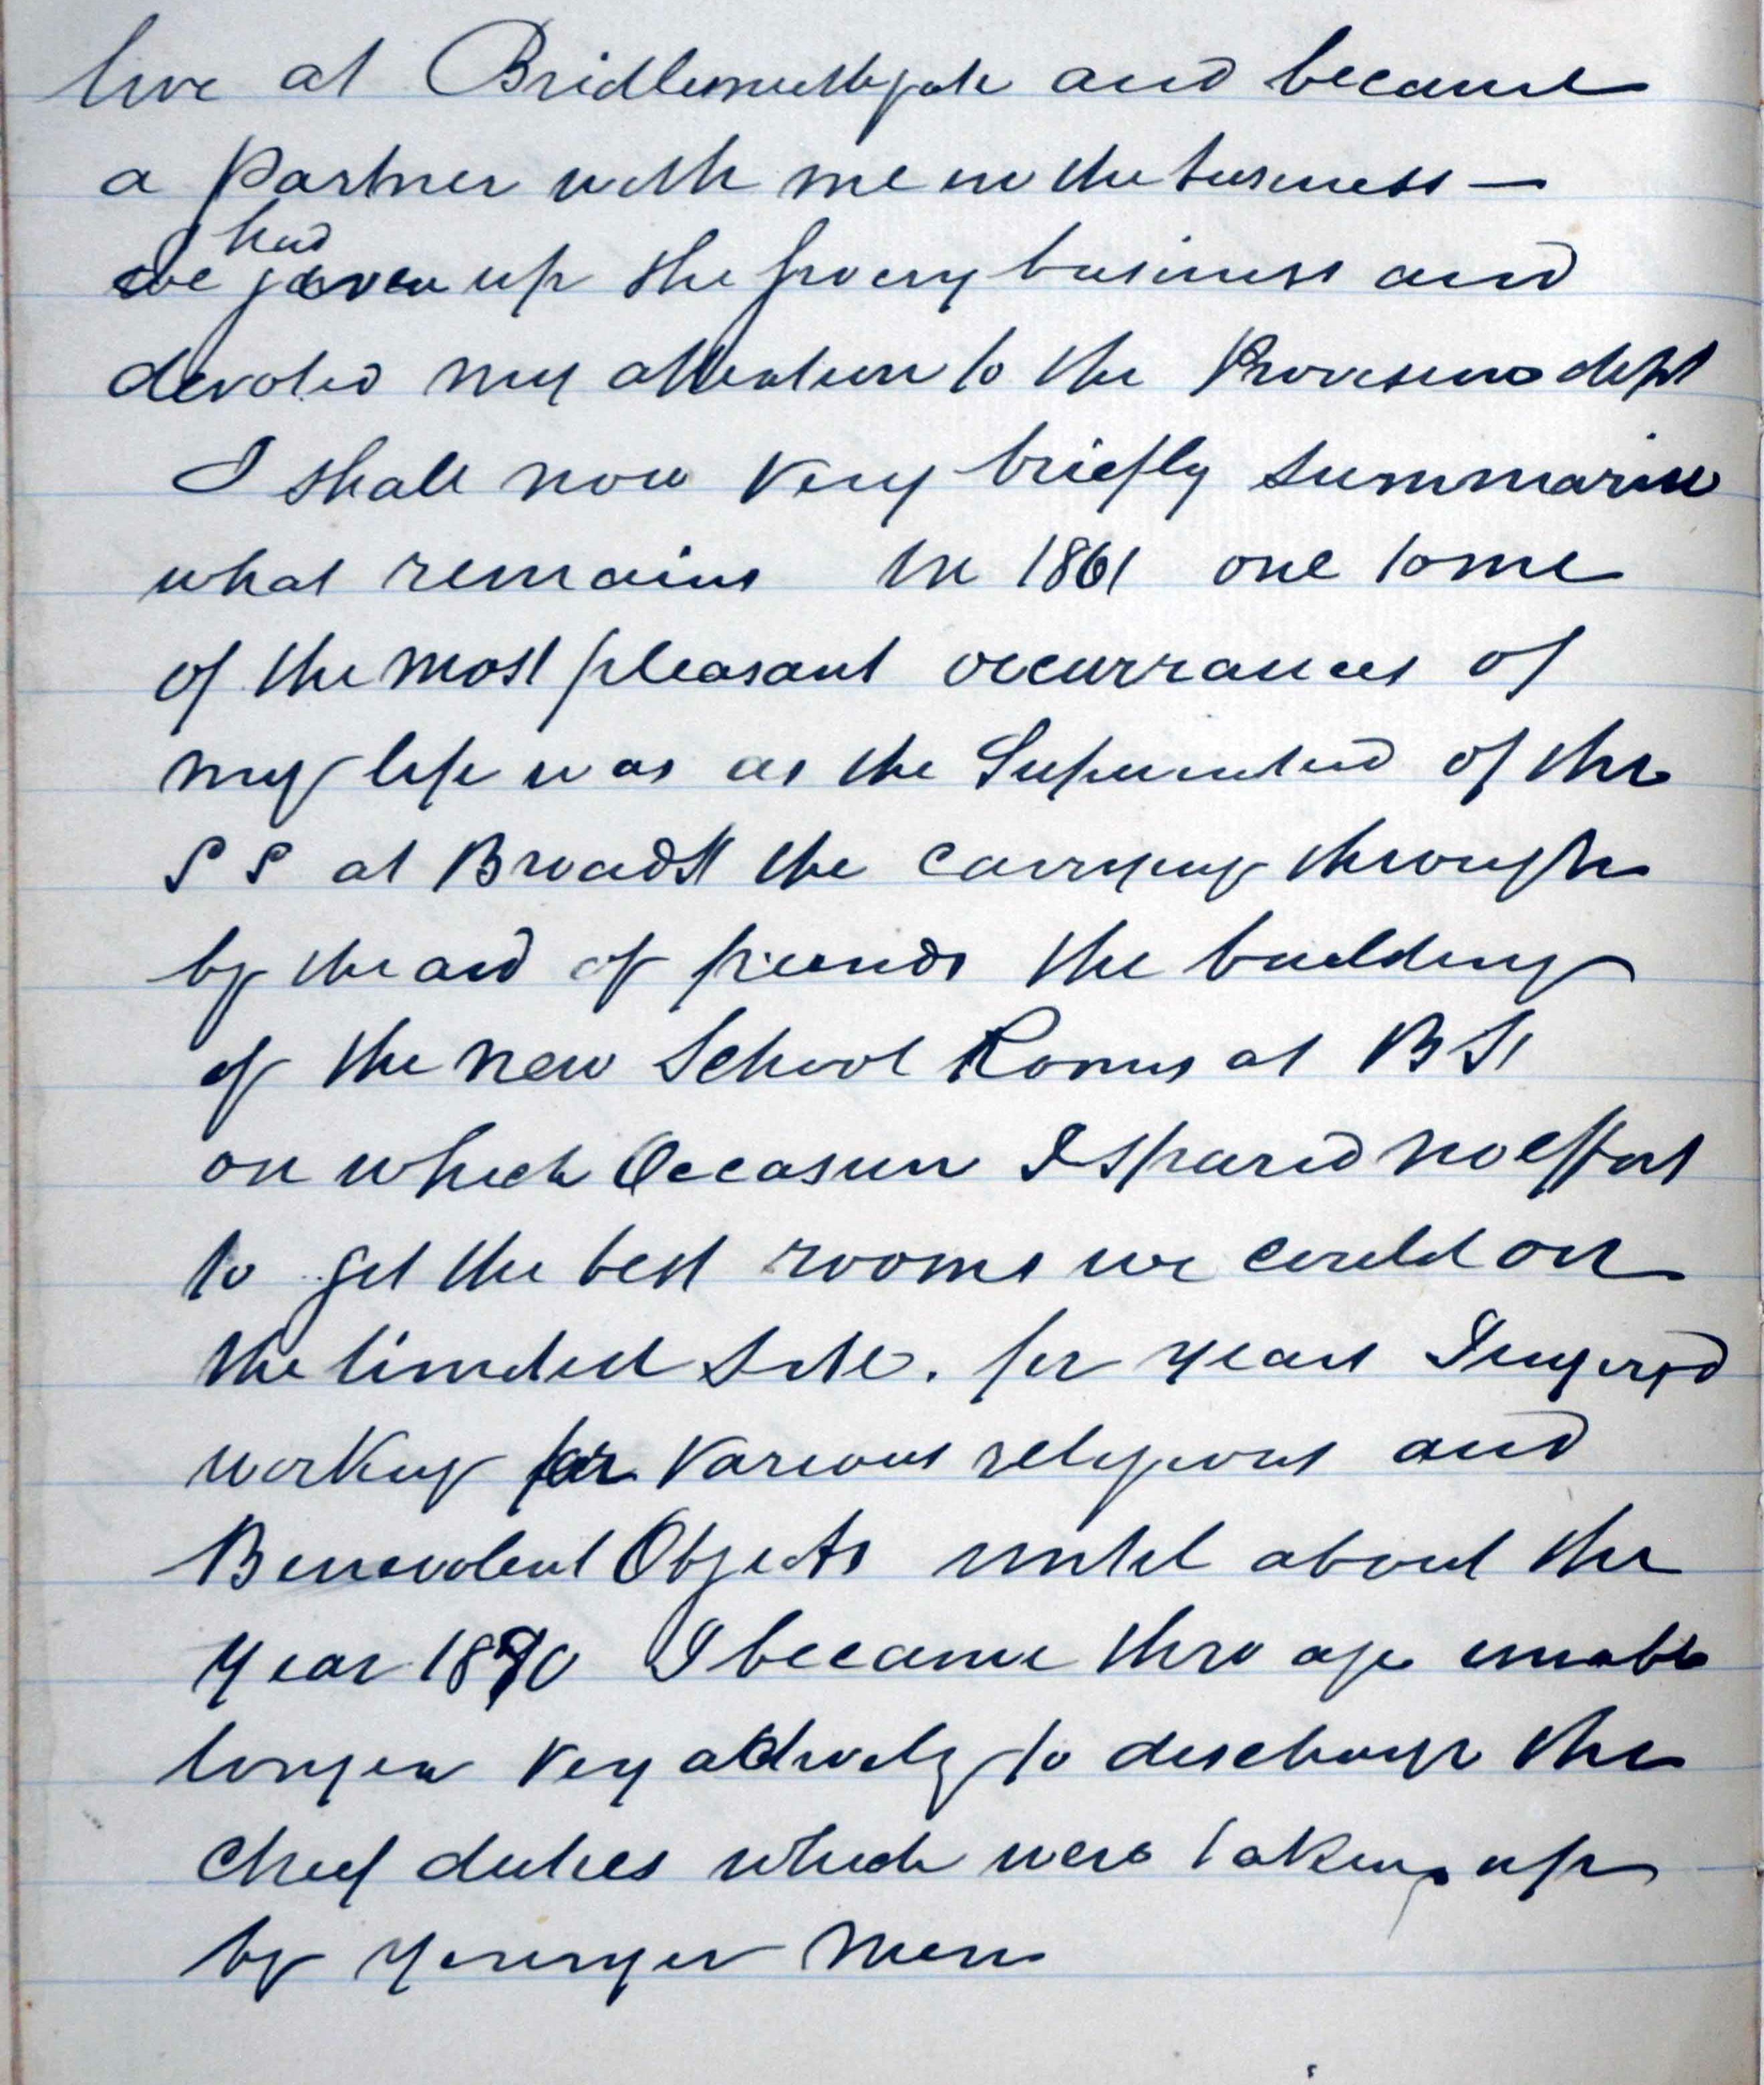 live at Bridlesmithgate and became
a partner with me in the business —
I had
we given up the Grocery business and
devoted my attention to the Provisions dept
I shall now very briefly summarise
what remains In 1861 one to me
of the most pleasant occurrances of
my life was as the Superintend of the
S S at Broad St the carrying through
by the aid of friends the building
of the new School Rooms at B St
on which Occasion I spared no effort
to get the best rooms we could on
the limited Site. for years I enjoyed
working for various religious and
Benevolent Objects until about the
year 1890 I became thro age unable
longer very actively to discharge the
chief duties which were taken up
by younger men